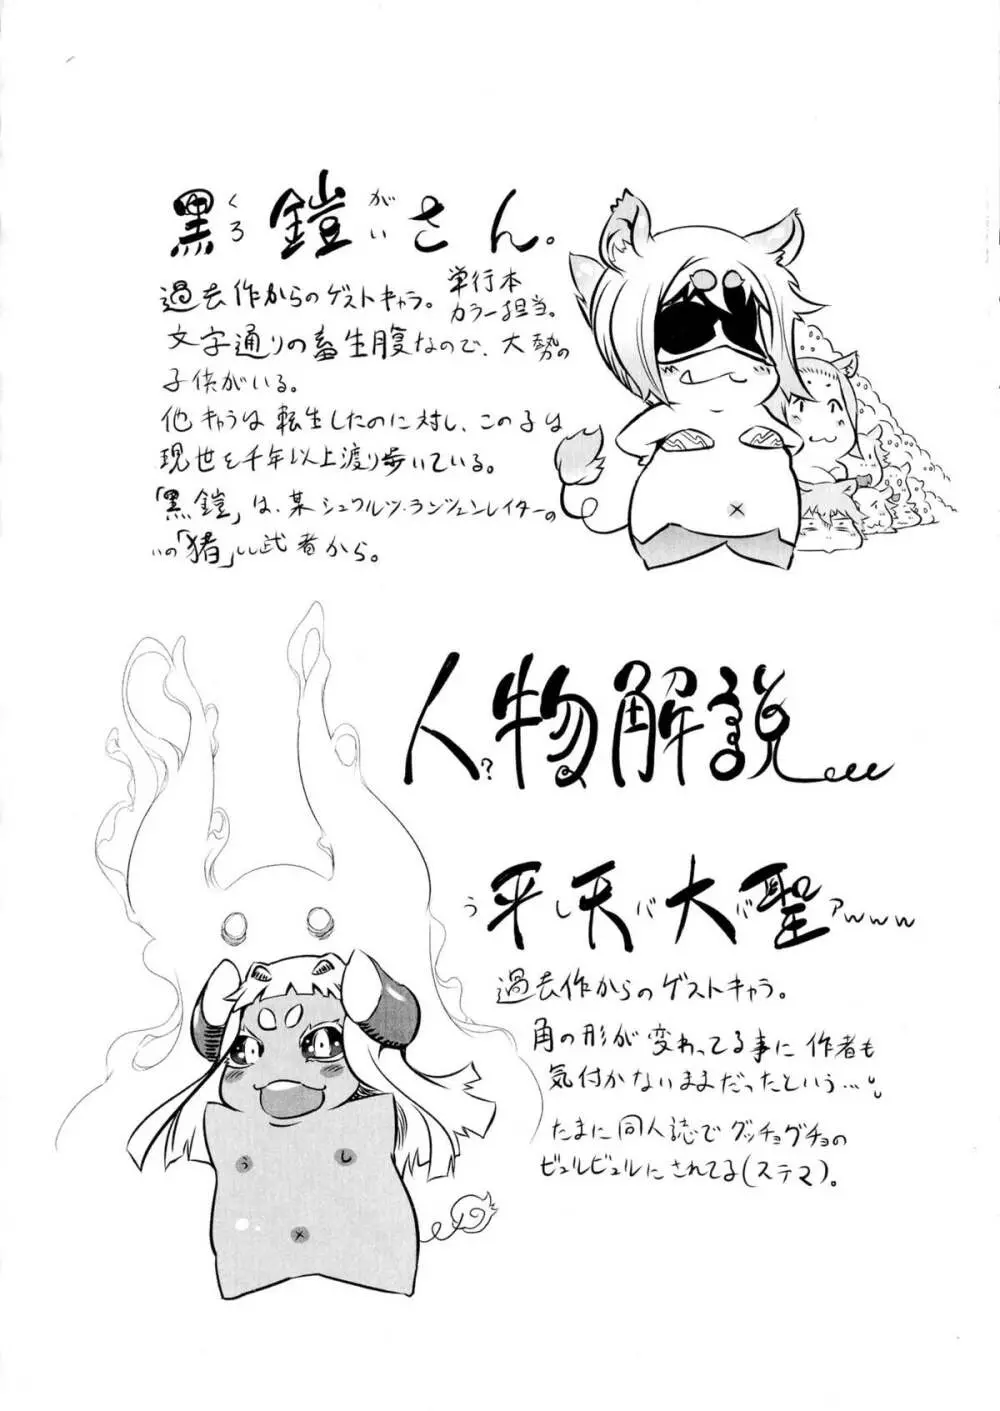 黒鎧さん。
くろ がい
過去作からのゲストキャラ。単行本カラー担当。
文字通りの畜生腹なので、大勢の
子供がいる。
他キャラは転生したのに対し、この子は
現世を千年以上渡り歩いている。
「黒鎧」は、某シュワルツ・ランツェンレイターの
「猪」い武者から。
人物解説
?
平天大聖
うしババアwww
過去作からのゲストキャラ。
角の形が変わってる事に作者も
気付かないままだったという…
たまに同人誌でグッチョグチョの
ビュルビュルにされてる(ステマ)。
う
し